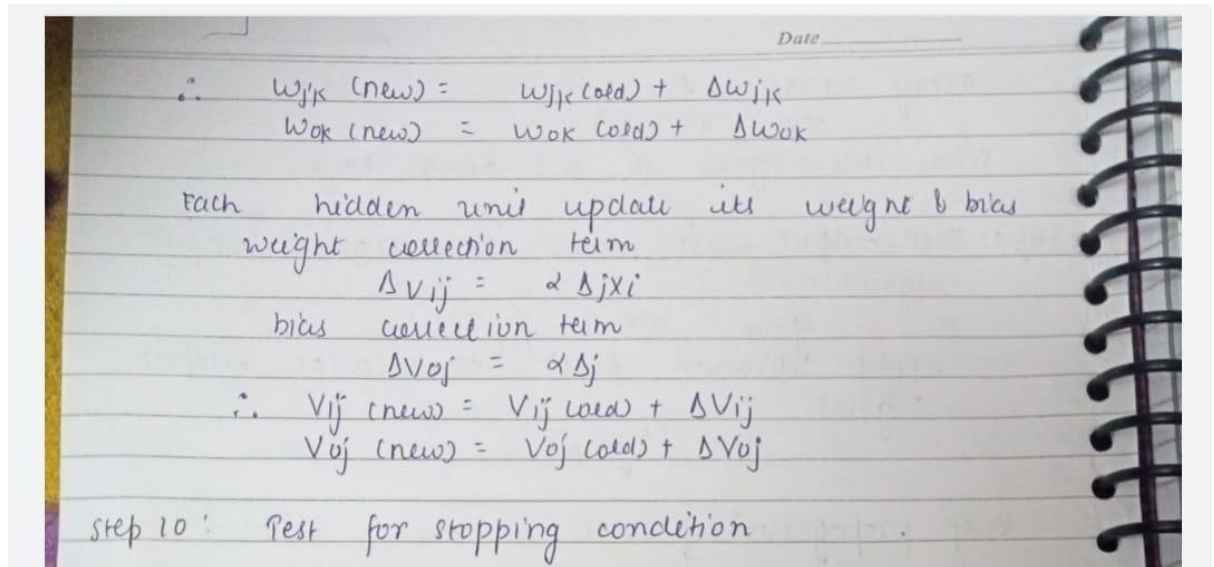 Date
∴ Wjk (new) = Wjk (old) + ΔWjk
Wok (new) = Wok (old) + ΔWok
Each hidden unit update its weight & bias
weight correction term
ΔVij = α Δjxi
bias correction term
ΔVoj = αΔj
∴ Vij (new) = Vij (old) + ΔVij
Voj (new) = Voj (old) + ΔVoj
Step 10: Test for stopping condition